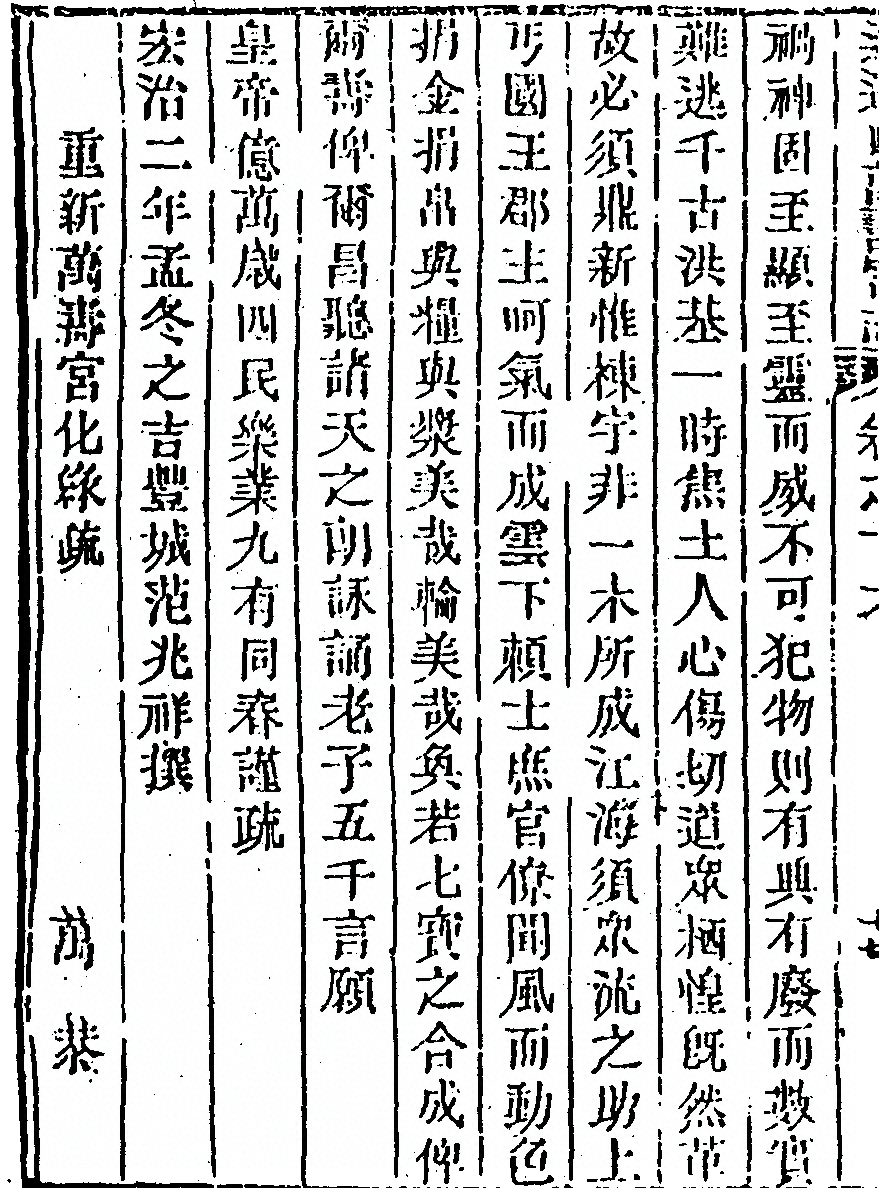 禍神固至顯至靈而威不可犯物則有興有廢而數實
難逃千古洪基一時焦土人心傷切道衆栖惶旣然革
故必須鼎新惟棟宇非一木所成江海須衆流之助上
丐國王郡主呵氣而成雲下頼士庶官僚聞風而動色
捐金捐帛與糧與漿美哉輪美哉奐若七寶之合成俾
爾壽俾爾昌聽諸天之朗詠誦老子五千言願
皇帝億萬歲四民樂業九有同春謹疏
宏治二年孟冬之吉豐城范兆祥撰
重新萬壽宮化緣疏 萬恭